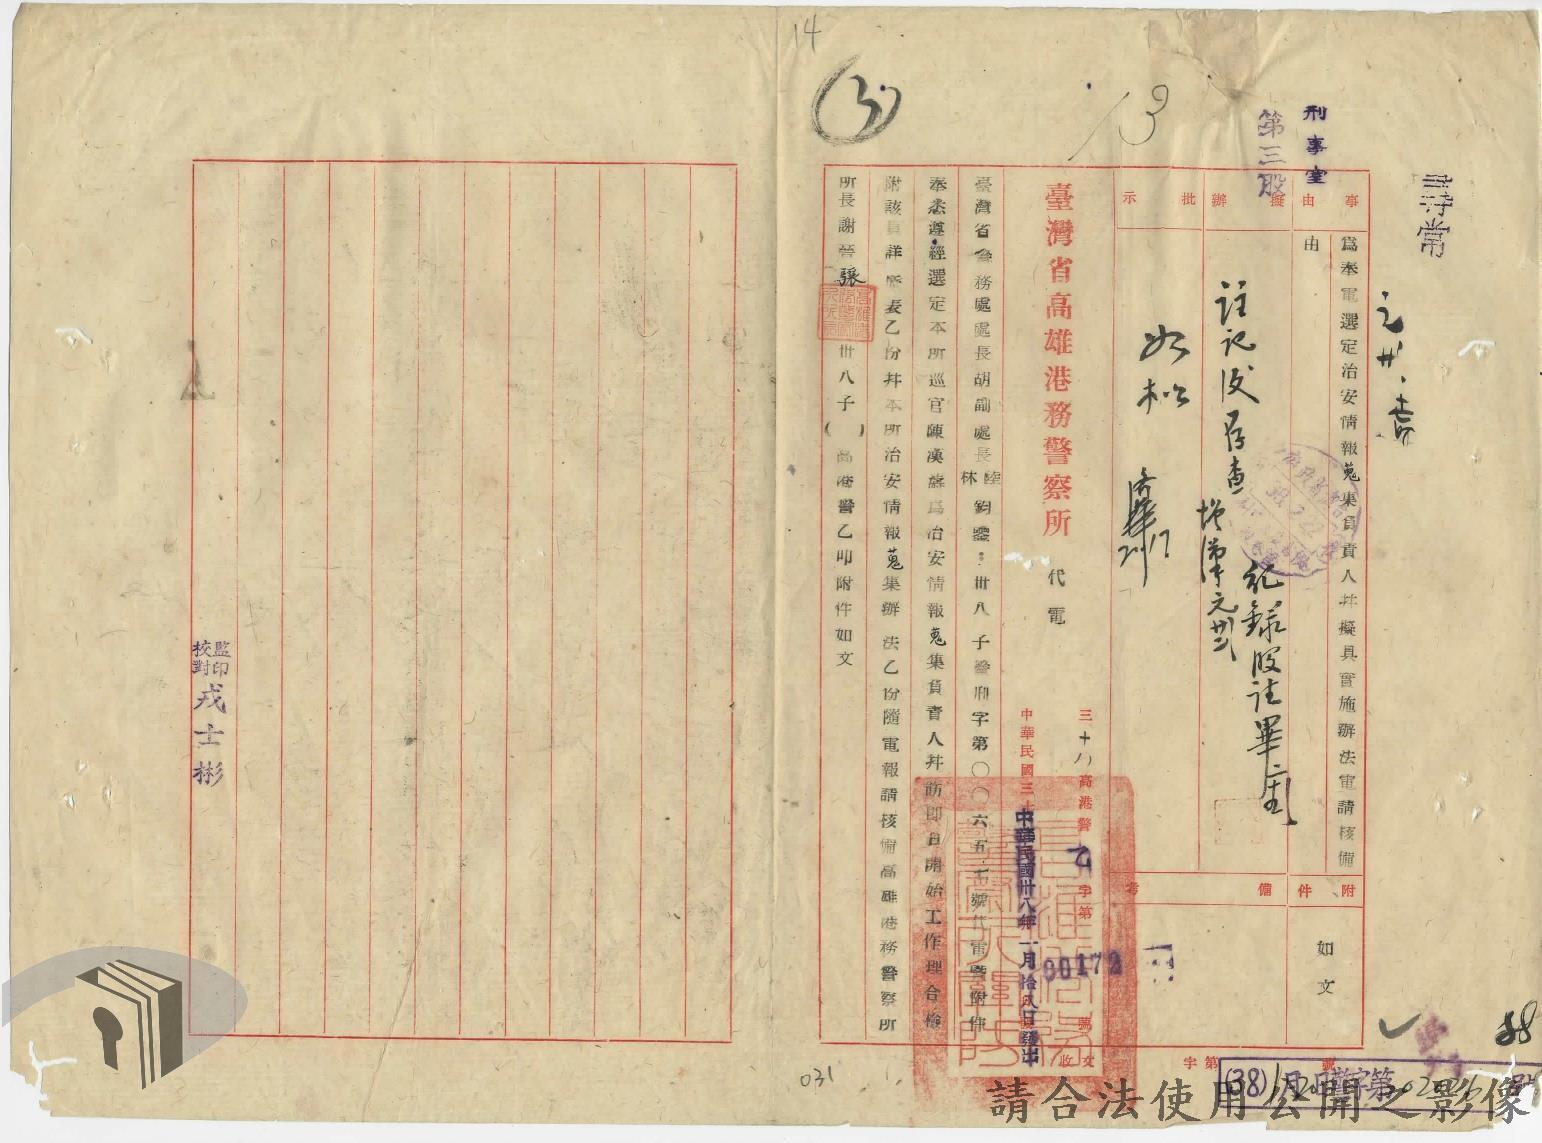 14
(3)
13
刑事室
第三股
尋常
事由
擬辦
批示
為奉電選定治安情報蒐集負責人並擬具實施辦法電請核備
由
註記後存查
紀錄股註畢
如擬
附件
如文
備考
臺灣省高雄港務警察所
代電
三十八高港警乙字第00172號
中華民國卅八年一月拾八日發出
臺灣省警務處處長胡副處長陸林鈞鑒：卅八子警刑字第〇〇六五一號代電暨附件
奉悉遵經選定本所巡官陳漢為治安情報蒐集負責人並飭即日開始工作理合檢
附該員詳歷表乙份并本所治安情報蒐集辦法乙份隨電報請核備高雄港務警察所
所長謝晉張卅八子（ ）高港警乙叩附件如文
收文
字第
號
(38)
88
監印
校對
戎士彬
031
請合法使用公開之影像